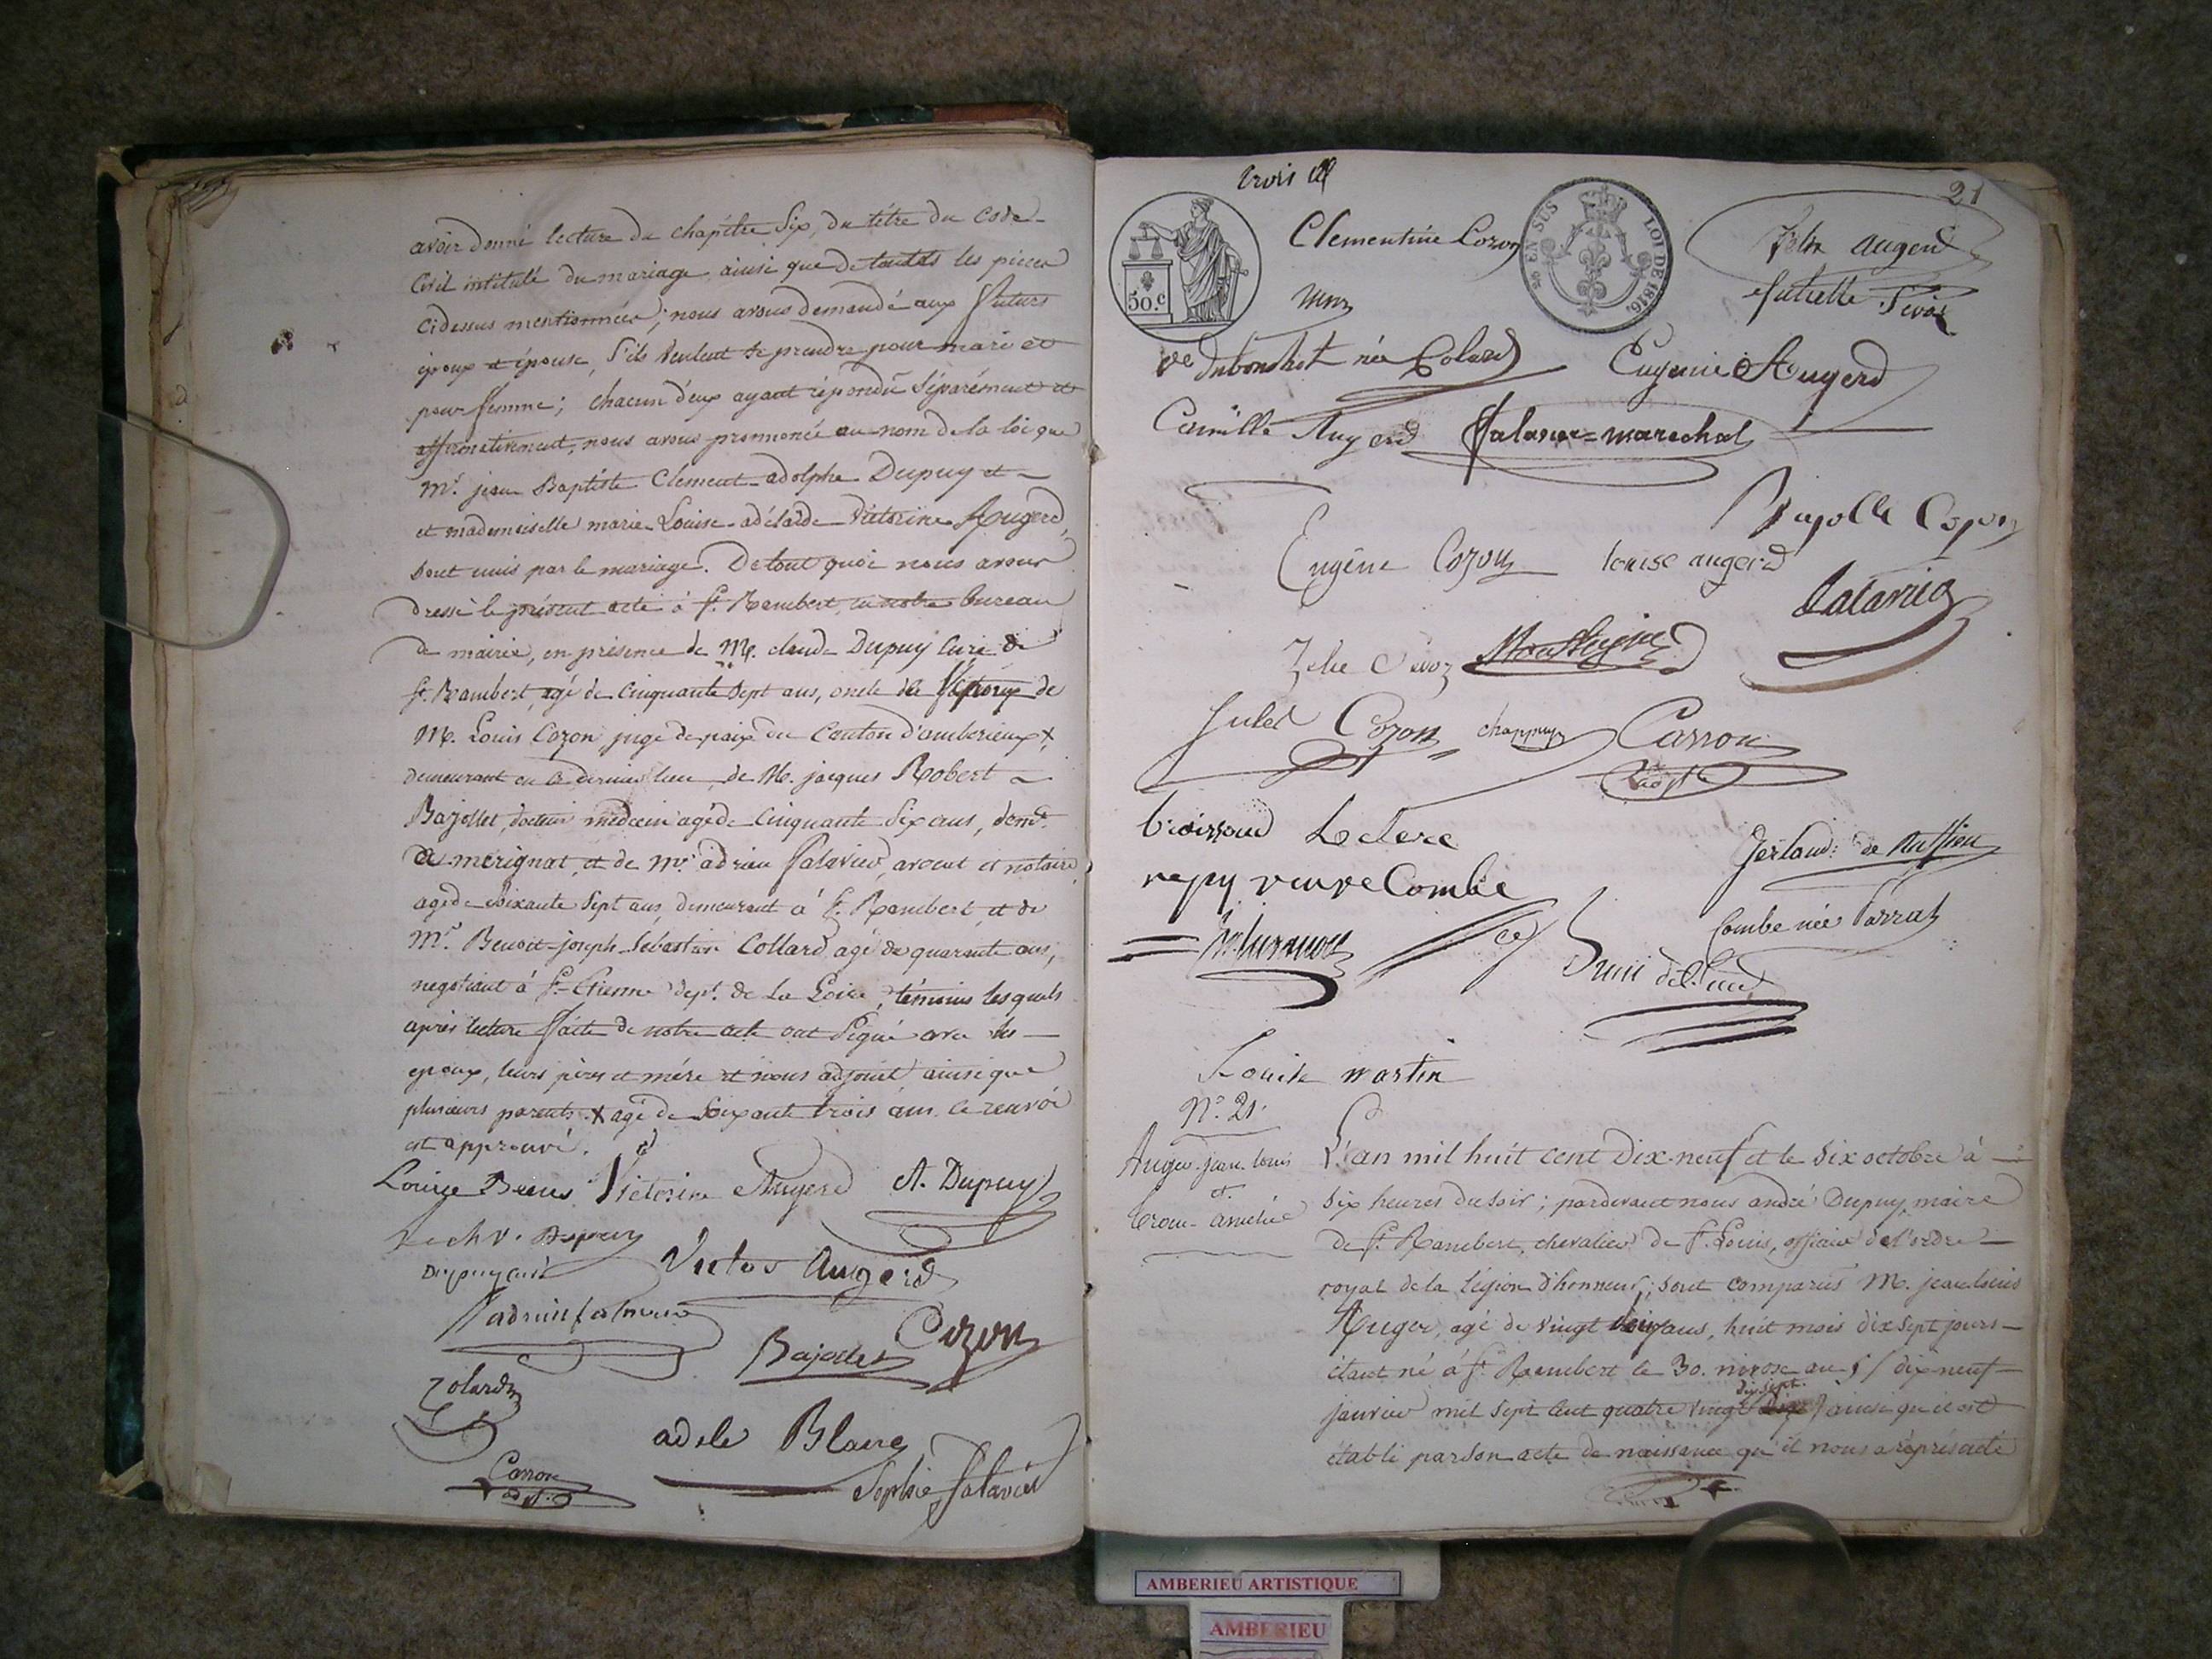 avoir donné lecture du chapitre Six, du titre du Code
Civil intitulé du mariage ainsi que de toutes les pieces
cidessus mentionnées; nous avons demandé aux futurs
epoux et épouse, S'ils veulent se prendre pour mari et
pour femme; chacun d'eux ayant répondu Séparément et
affirmativement, nous avons prononcé au nom de la loi que
Mr. jean Baptiste Clement adolphe Dupuy et
et mademoiselle marie Louise adélaïde Victorine Augerd,
sont unis par le mariage. De tout quoi nous avons
dressé le présent acte à St. Rambert, en notre bureau
de mairie, en présence de M. claude Dupuy Curé de
St. Rambert, agé de cinquante Sept ans, oncle de l'époux de
M. Louis Cozon, juge de paix du Canton d'amberieux X
demeurant en ce dernier lieu, de M. jacques Robert
Bajollet, docteur médecin agé de Cinquante Six ans, demt.
à merignat, et de Mr. adrien Salavier, avocat et notaire,
agé de Soixante Sept ans, demeurant à St. Rambert, et de
Mr. Benoit joseph Sebastien Collard agé de quarante ans,
negotiant à St. Etienne dept. de la Loire, témoins lesquels
après lecture faite de notre acte ont Signé avec les
epoux, leurs pères et mère et nous adjoint ainsi que
plusieurs parents. X agé de Soixante trois ans. le renvoi
est approuvé.
Victorine Augerd A. Dupuy
Dupuy curé Victor Augerd
Cozon
Bajollet
adele Blanc
Carron
adjt.
Sophie Salavier
trois
21
Clementine Cozon
50.c
EN SUS LOI DE 1816
felix augerd
née Colard Eugenie Augerd
Camille Augerd Salavier=marechal
Eugène Cozon louise augerd
Salavier
Zelie
Jules Cozon chappuy Carron
adjt
Leclerc
veuve Combe
Combe née
Louise martin
No. 21.
Auger jean louis
et
L'an mil huit cent Dix-neuf et le Six octobre à
Six heures du soir; pardevant nous andré Dupuy, maire
de St. Rambert, chevalier de St. Louis, officier de l'ordre
royal de la légion d'honneur; sont comparus M. jean louis
Auger, agé de vingt deux ans, huit mois dix sept jours
étant né à St. Rambert le 30. nivose an 5 / dix neuf
dix sept.
janvier mil Sept cent quatre vingt ainsi qu'il est
établi par son acte de naissance qu'il nous a représenté
AMBERIEU ARTISTIQUE
AMBERIEU